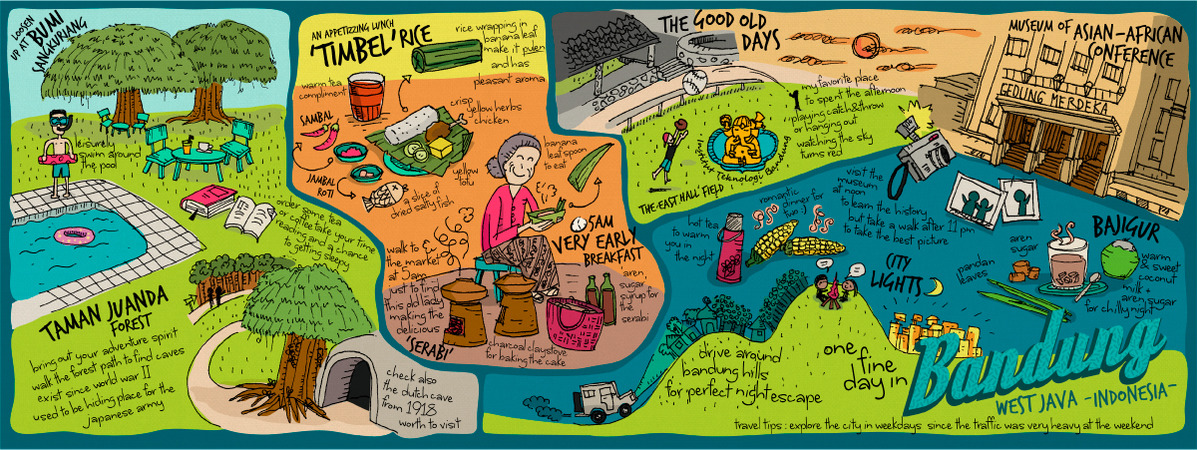 LOOSEN
UP AT BUMI
SANGKURIANG
leisurely
swim around
the pool
order some tea
or coffee take your time
reading and a chance
to getting sleepy
TAMAN JUANDA
FOREST
bring out your adventure spirit
walk the forest path to find caves
exist since world war II
used to be hiding place for the
japanese army
check also
the dutch cave
from 1918
worth to visit
AN APPETIZZING LUNCH
'TIMBEL' RICE
rice wrapping in
banana leaf
make it pulen
and has
pleasant aroma
warm tea
compliment
SAMBAL
JAMBAL
ROTI
crisp
yellow herbs
chicken
yellow
tofu
a slice of
dried salty fish
banana
leaf spoon
to eat
5AM
VERY EARLY
BREAKFAST
walk to
the market
at 5am
just to find
this old lady
making the
delicious
'SERABI'
aren
sugar
syrup for
the
serabi
charcoal claystove
for baking the cake
THE GOOD OLD
DAYS
my favorite place
to spent the afternoon
playing catch&throw
or hanging out
watching the sky
turns red
Institut Teknologi Bandung
THE EAST HALL FIELD
MUSEUM OF ASIAN-AFRICAN
CONFERENCE
GEDUNG MERDEKA
visit the
museum
at noon
to learn the history
but take a walk after 11 pm
to take the best picture
hot tea
to warm
you in
the night
romantic
dinner for
two :)
CITY
LIGHTS
BAJIGUR
aren
sugar
pandan
leaves
warm
& sweet
coconut
milk +
aren sugar
for chilly night
drive around
bandung hills
for perfect nightescape
one
fine
day in
Bandung
WEST JAVA -INDONESIA-
travel tips : explore the city in weekdays since the traffic was very heavy at the weekend